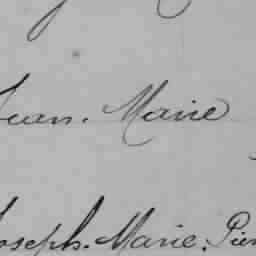 Jean. Marie
Joseph. Marie. Pier